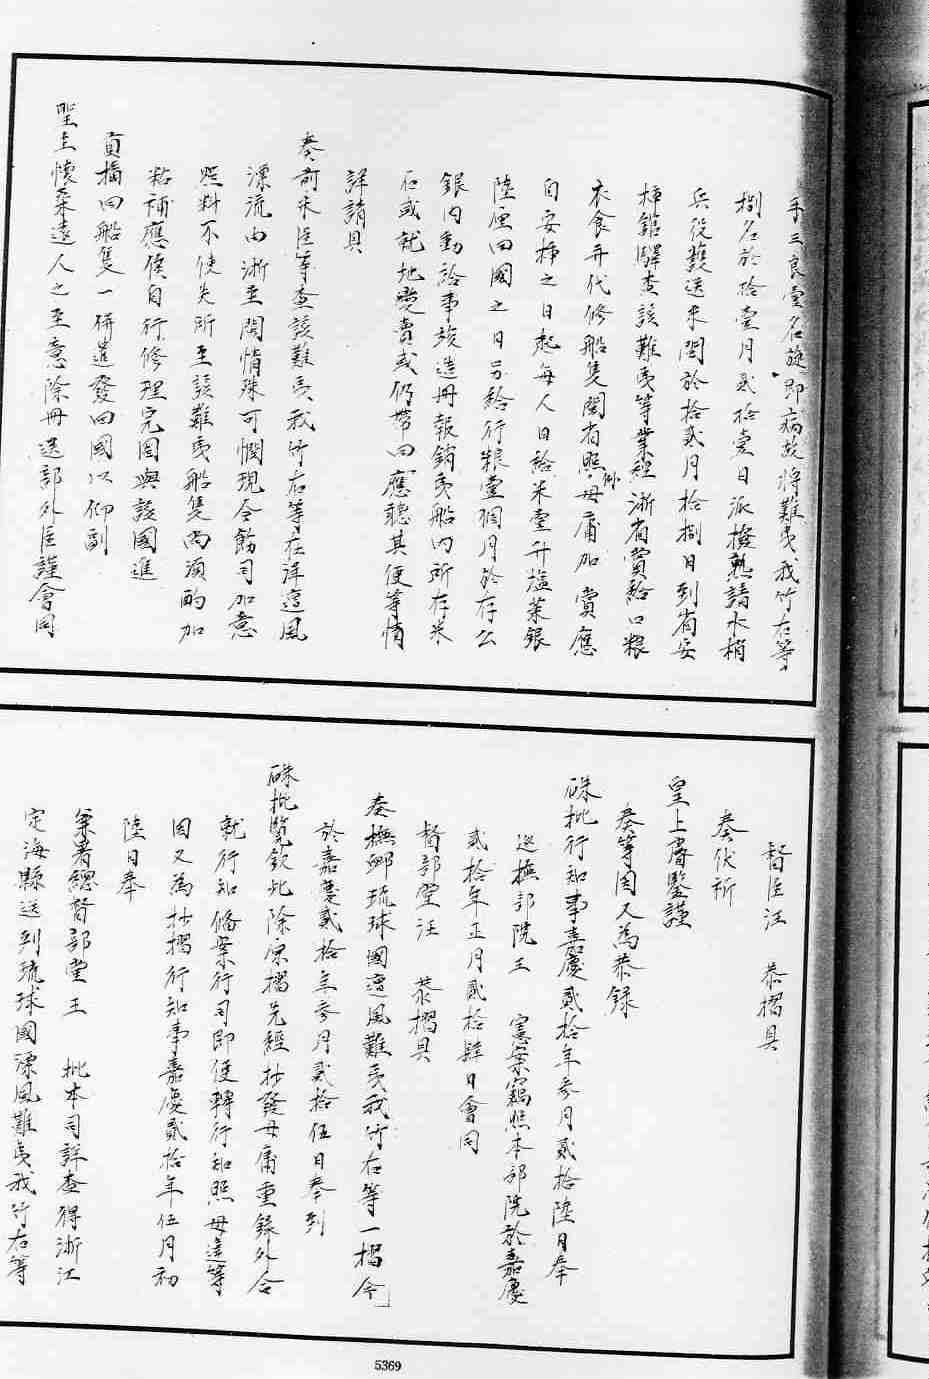 手三良壹名旋即病故將難夷我竹右等
捌名於拾壹月貳拾壹日派撥熟諳水梢
兵役護送來閩於拾貳月拾捌日到省安
插館驛查該難夷等業經浙省賞給口粮
衣食并代修船隻閩省照例毋庸加賞應
自安插之日起每人日給米壹升塩菜銀
陸厘回國之日另給行粮壹個月於存公
銀內動給事竣造冊報銷夷船內所存米
石或就地變賣或仍帶回應聽其便等情
詳請具
奏前來臣等查該難夷我竹右等在洋遭風
漂流由浙至閩情殊可憫現今飭司加意
照料不使失所至該難夷船隻尚須酌加
粘補應俟自行修理完固與該國進
貢摘回船隻一併遣發回國以仰副
聖主懷柔遠人之至意除冊送部外臣謹會同
督臣汪 恭摺具
奏伏祈
皇上睿鑒謹
奏等因又為恭錄
硃批行知事嘉慶貳拾年叁月貳拾陸日奉
巡撫部院王 憲案竊照本部院於嘉慶
貳拾年正月貳拾肆日會同
督部堂汪 恭摺具
奏撫卹琉球國遭風難夷我竹右等一摺今
於嘉慶貳拾年叁月貳拾伍日奉到
硃批覽欽此除原摺先經抄發毋庸重錄外合
就行知備案行司即便轉行知照毋違等
因又為抄摺行知事嘉慶貳拾年伍月初
陸日奉
兼署總督部堂王 批本司詳查得浙江
定海縣送到琉球國漂風難夷我竹右等
5369